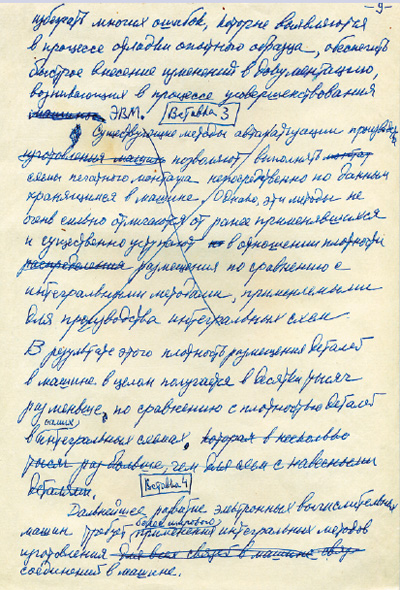 - 9 -
избежать многих ошибок, которые выявляются
в процессе отладки опытного образца, обеспечить
быстрое внесение изменений в документацию,
возникающих в процессе усовершенствования
машины ЭВМ. Вставка 3
Существующие методы автоматизации
изготовления машин позволяют выполнять монтаж
схемы печатного монтажа непосредственно по данным
хранящимся в машине. Однако, эти методы не
очень сильно отличаются от ранее применявшихся
и существенно уступают в отношении плотности
распределения размещения по сравнению с
интегральными методами, применяемыми
для производства интегральных схем
В результате этого плотность размещения деталей
в машине в целом получается в десятки тысяч
раз меньше, по сравнению с плотностью деталей
в самих интегральных схемах, которая в несколько
тысяч раз больше, чем для схем с навесными
деталями. Вставка 4
Дальнейшее развитие электронных вычислительных
машин требует более широкого применения интегральных методов
изготовления для всех связей в машине
соединений в машине.